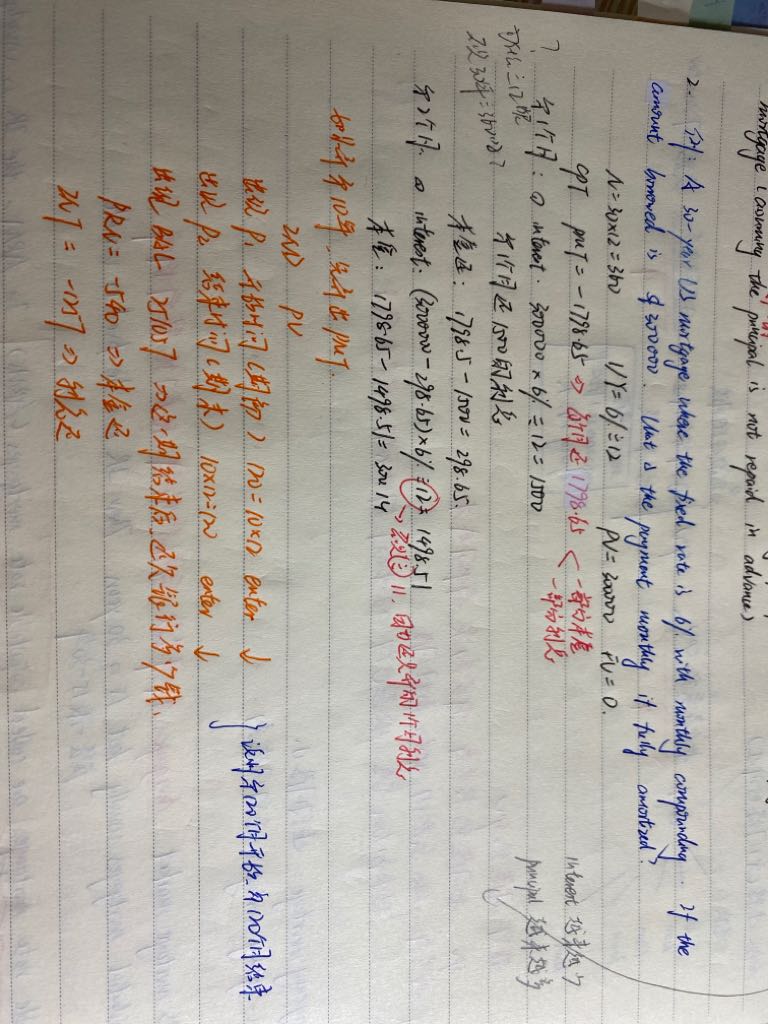 mortgage (assuming the principal is not repaid in advance)
2. 例: A 30-year US mortgage where the fixed rate is 6% with monthly compounding. If the
amount borrowed is $300000. What is the payment monthly if fully amortized?
N=30×12=360 I/Y=6%÷12 PV=300000 FV=0.
CPT PMT=-1798.65 ⇒ 每月还1798.65 < 一部分本金
一部分利息
第1个月: ① interest. 300000×6%÷12=1500
第1个月还1500的利息
本金还: 1798.65-1500=298.65.
第2个月. ① interest: (300000-298.65)×6%÷12=1498.51
本金: 1798.65-1498.51=300.14
?
interest 越来越少
principal 越来越多
2ND PV
出现 P1 开始时间(期初) 120=10×12 enter ↓
出现 P2 结束时间(期末) 10×12=120 enter ↓
} 说明第120个月开始, 第120个月结束
出现 BAL 251057 ⇒ 这一期结束后, 还欠银行多少钱.
PRN=-540 ⇒ 本金还
INT=-1257 ⇒ 利息还